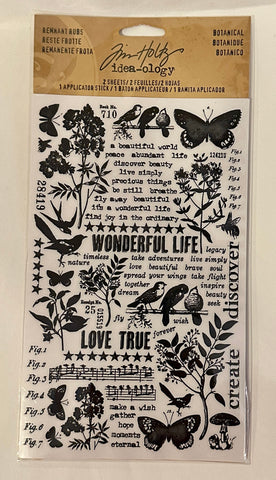 REMNANT RUBS
RESTE FROTTE
REMANENTE FROTA
Tim Holtz
idea-ology
BOTANICAL
BOTANIQUE
BOTÁNICO
2 SHEETS/2 FEUILLES/2 HOJAS
1 APPLICATOR STICK/1 BATON APPLICATEUR/1 RAMITA APLICADOR
Book No.
710
a beautiful world
peace abundant life
discover beauty
live simply
precious things
be still breathe
fly away beautiful
it's a wonderful life
find joy in the ordinary
Fig.1
Fig.2
Fig.3
Fig.4
Fig.5
Fig.6
Fig.7
WONDERFUL LIFE
legacy
timeless
nature
take adventures live simply
love beautiful brave soul
spread your wings take flight
together
dream
inspire
beauty
seek
25
fly
wish
forever
LOVE TRUE
discover
create
Fig.1
Fig.2
Fig.3
Fig.4
Fig.5
Fig.6
Fig.7
make a wish
gather
hope
moments
eternal